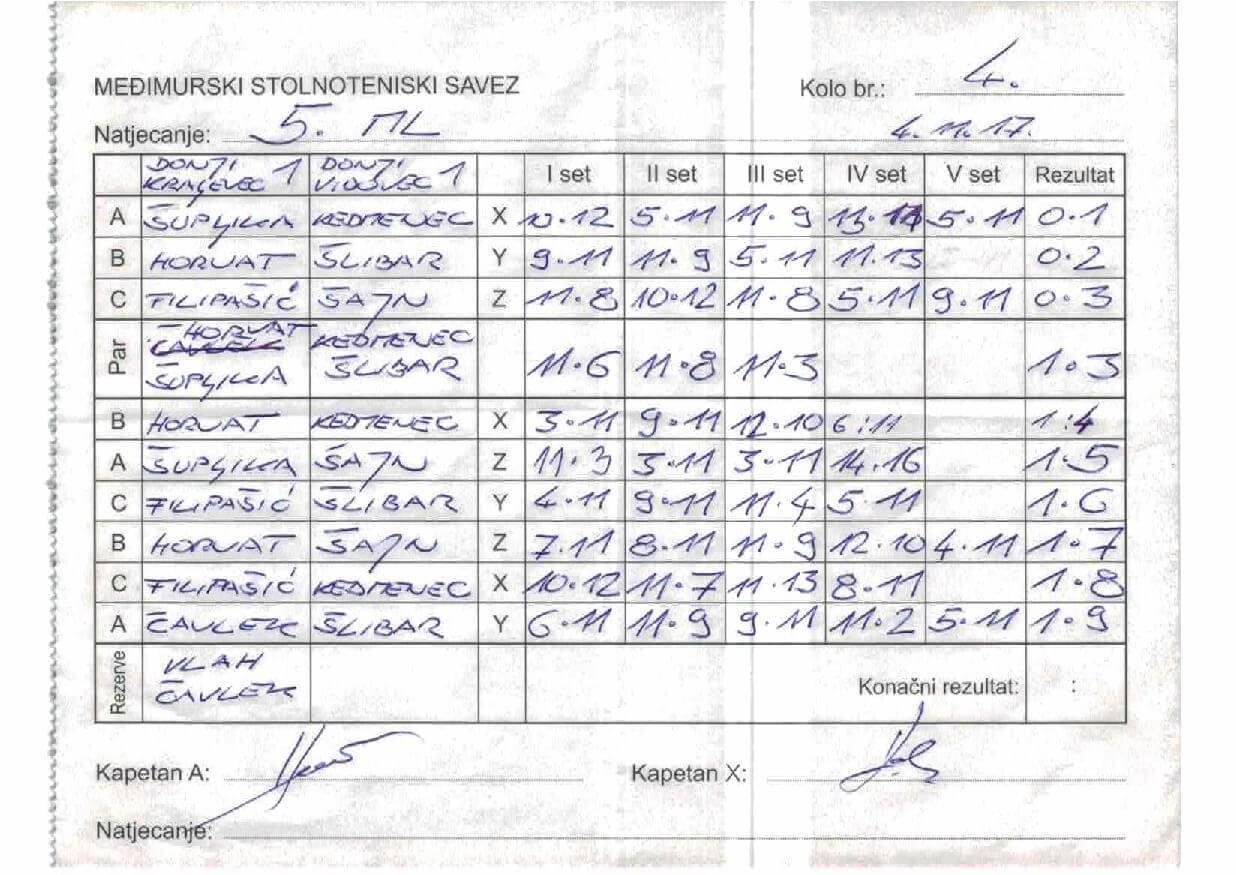 MEĐIMURSKI STOLNOTENISKI SAVEZ Kolo br.: 4.
Natjecanje: 5. ML 4.11.17.
DONJI KRALJEVEC 1 DONJI VIDOVEC 1 I set II set III set IV set V set Rezultat
A ŠUPLJIKA KEDMENEC X 10·12 5·11 11·9 5·11 0·1
B HORVAT ŠLIBAR Y 9·11 11·9 5·11 11·13 0·2
C FILIPAŠIĆ ŠAJN Z 11·8 10·12 11·8 5·11 9·11 0·3
HORVAT KEDMENEC
Par ČAVLEK
ŠUPLJIKA ŠLIBAR 11·6 11·8 11·3 1·3
B HORVAT KEDMENEC X 3·11 9·11 12·10 6:11 1:4
A ŠUPLJIKA ŠAJN Z 11·3 3·11 3·11 14·16 1·5
C FILIPAŠIĆ ŠLIBAR Y 4·11 9·11 11·4 5·11 1·6
B HORVAT ŠAJN Z 7·11 8·11 11·9 12·10 4·11 1·7
C FILIPAŠIĆ KEDMENEC X 10·12 11·7 11·13 8·11 1·8
A ČAVLEK ŠLIBAR Y 6·11 11·9 9·11 11·2 5·11 1·9
Rezerve VLAH
ČAVLEK Konačni rezultat: :
Kapetan A: Kapetan X:
Natjecanje: